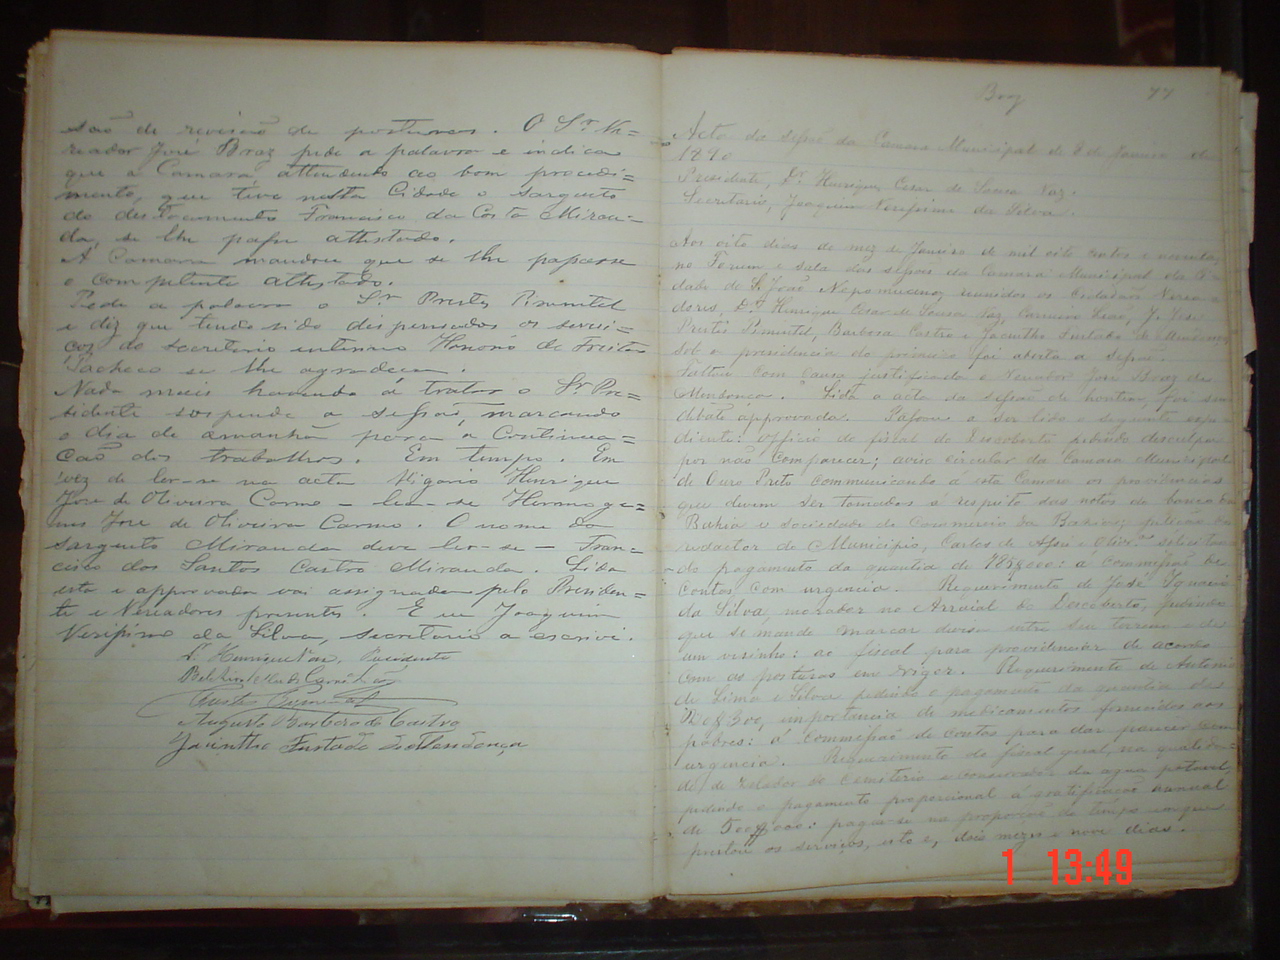 são de revisão de posturas. O Sr. Ve=
reador José Braz pede a palavra e indica
que a Camara attendendo ao bom procedi=
mento, que teve nesta Cidade o sargento
do destacamento Francisco da Costa Miran=
da, se lhe passe attestado.
A Camara mandou que se lhe passasse
o competente attestado.
Pede a palavra o Sr. Prestes Pimentel
e diz que tendo sido dispensados os servi=
ços do secretario interino Honorio de Freitas
Pacheco se lhe agradeça.
Nada mais havendo á tratar o Sr. Pre=
sidente suspende a sessão, marcando
o dia de amanhã para a Continua=
ção dos trabalhos. Em tempo. Em
vez de ler-se na acta Vigario Henrique
José de Oliveira Carmo – leia-se Hermoge=
nes José de Oliveira Carmo. O nome do
sargento Miranda deve ler-se – Fran=
cisco dos Santos Castro Miranda. Lida
esta e approvada vai assignada pelo Presiden=
te e Vereadores presentes. E eu Joaquim
Verissimo da Silva, secretario a escrivi.
Dr. Henrique Vaz, Presidente
Prestes Pimentel
Augusto Barbosa de Castro
Jacintho Furtado de Mendonça
Braz 77
Acta da sessão da Camara Municipal de 8 de Janeiro de
1890
Presidente, Dr. Henrique Cesar de Sousa Vaz.
Secretario, Joaquim Verissimo da Silva.
Aos oito dias do mez de Janeiro de mil oito centos e noventa,
no Forum e sala das sessões da Camara Municipal da Ci=
dade de S. João Nepomuceno, reunidos os Cidadãos Verea=
dores, Dr. Henrique Cesar de Sousa Vaz, Carneiro Leão, J. José
Prestes Pimentel, Barbosa Castro e Jacintho Furtado de Mendonça
sob a presidencia do primeiro foi aberta a sessão.
Faltou com causa justificada o Vereador José Braz de
Mendonça. Lida a acta da sessão de hontem, foi sem
debate approvada. Passou a ser lido o seguinte expe=
diente: officio do fiscal do Descoberto pedindo desculpa
por não comparecer; aviso circular da Camara Municipal
de Ouro Preto communicando á esta Camara as providencias
que devem ser tomadas á respeito das notas do banco da
Bahia e sociedade do Commercio da Bahia; petição do
redactor do Municipio, Carlos de Assis e solicitan
do pagamento da quantia de : á commissão de
Contas com urgencia. Requerimento de José Ignacio
da Silva, morador no Arraial do Descoberto, pedindo
que se mande marcar divisa entre seu terreno e de
um visinho: ao fiscal para providenciar de accordo
com as posturas em vigor. Requerimento de Antonio
de Lima e Silva pedindo o pagamento da quantia de
importancia de medicamentos fornecidos aos
pobres: á commissão de contas para dar parecer com
urgencia. Requerimento do fiscal geral, na qualida=
de de Zelador do Cemiterio e conservador da agua potavel,
pedindo o pagamento proporcional á gratificação annual
de 500$000: pague-se na proporção do tempo em que
prestou os serviços, isto é, dois mezes e nove dias.
1 13:49